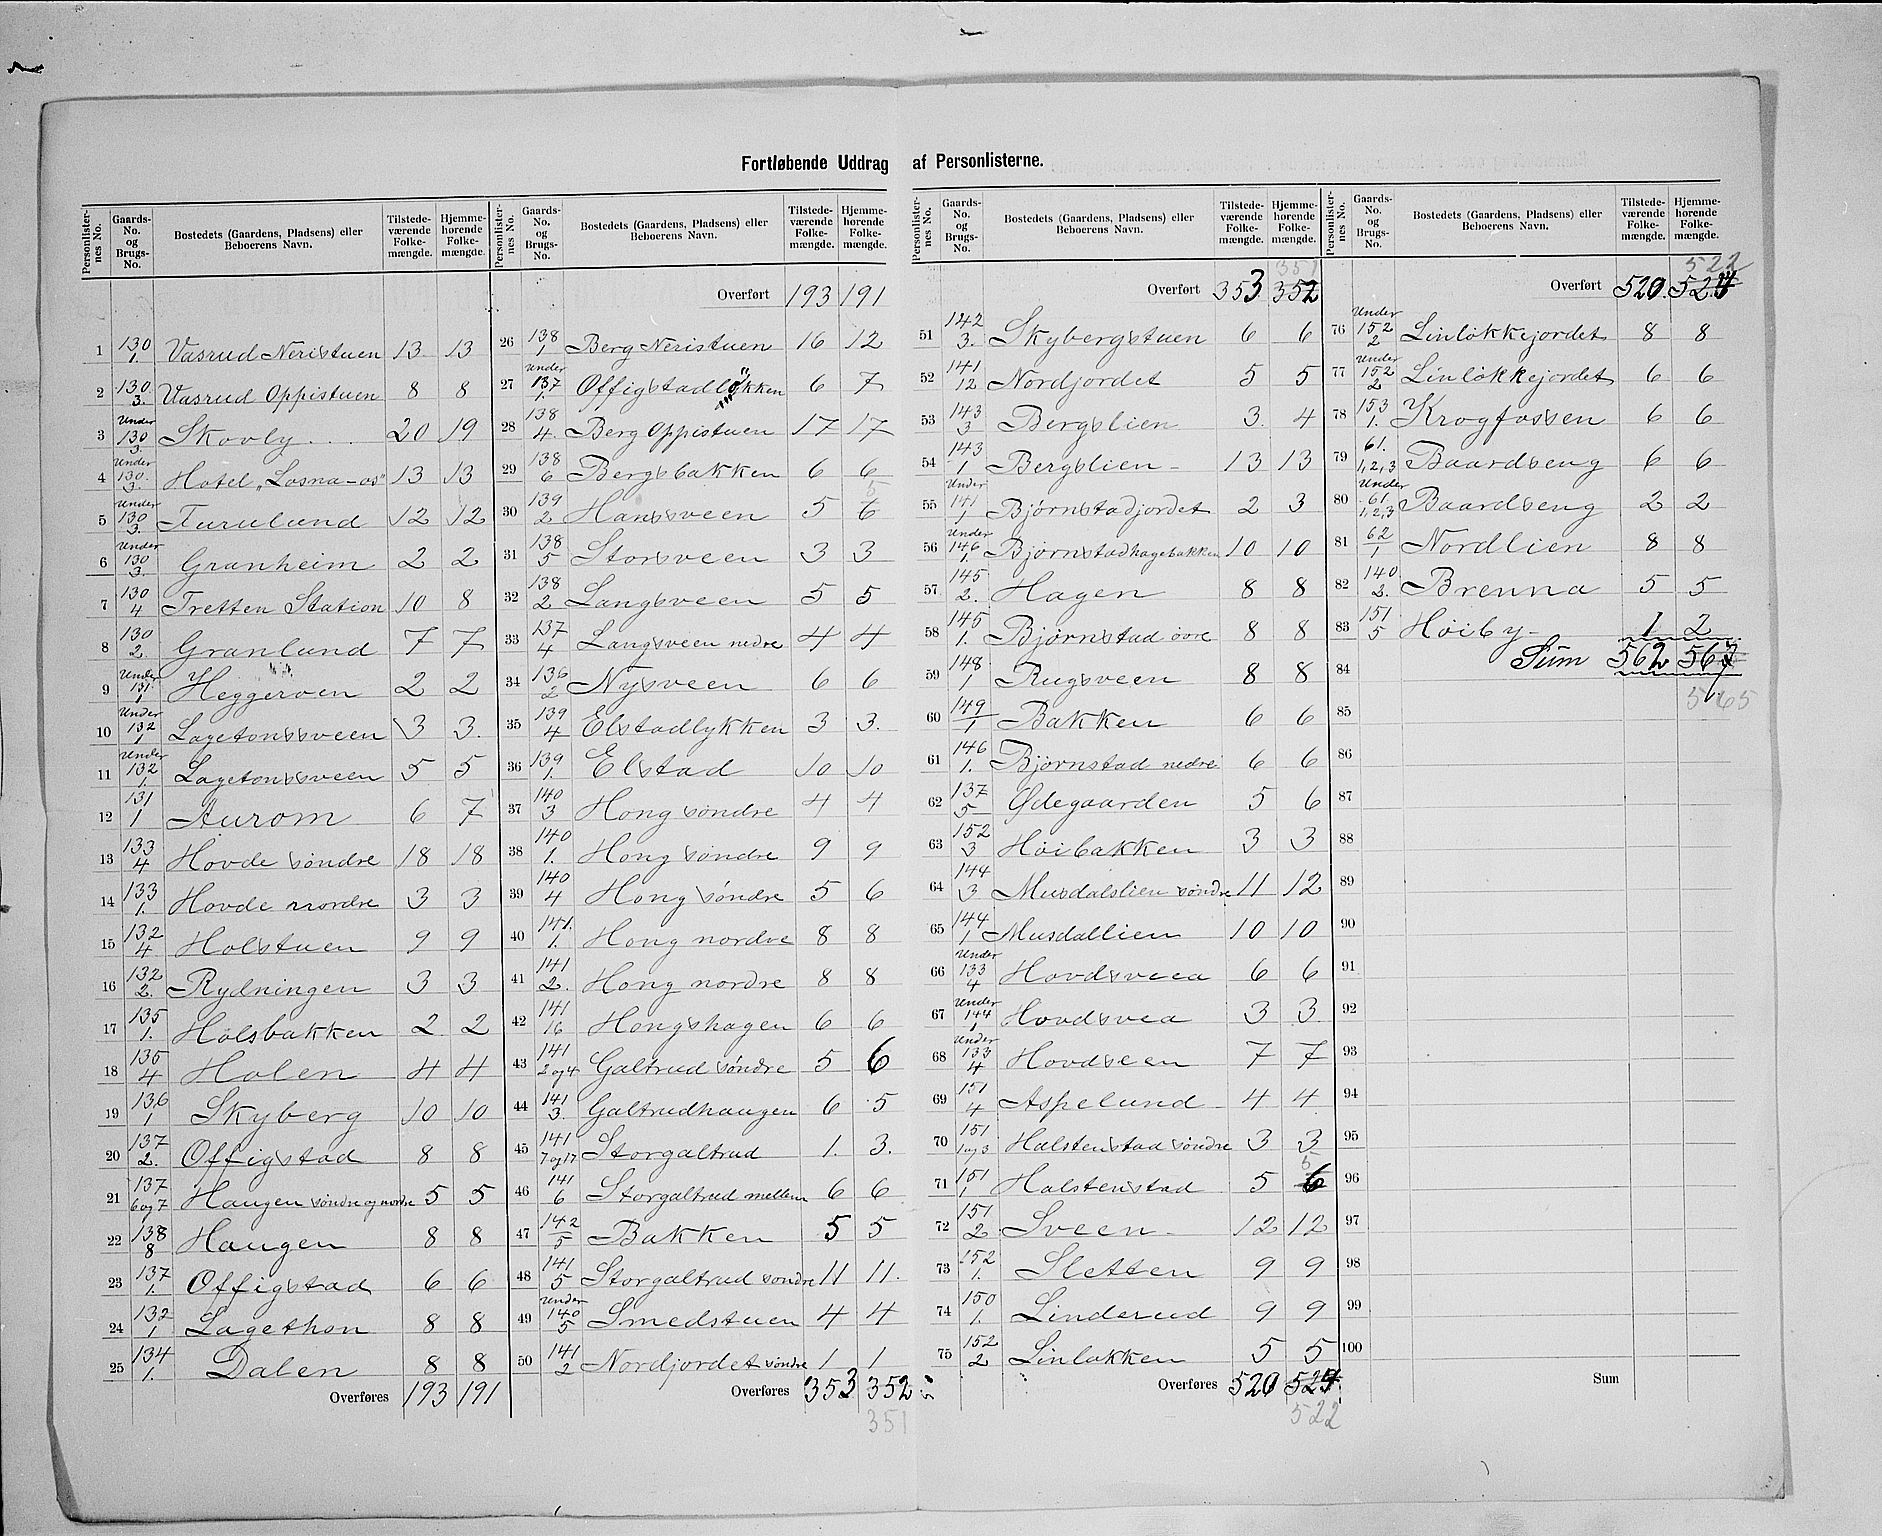 Fortløbende Uddrag af Personlisterne.
Personlisternes No. | Gaards-No. og Brugs-No. | Bostedets (Gaardens, Pladsens) eller Beboerens Navn. | Tilstedeværende Folkemængde. | Hjemmehørende Folkemængde.
1 | 130/1. | Vasrud Neristuen | 13 | 13
2 | 130/3. | Vasrud Oppistuen | 8 | 8
3 | Under 130/3. | Skovly | 20 | 19
4 | Under 130/3. | Hotel „Losna-os" | 13 | 13
5 | Under 130/3. | Furulund | 12 | 12
6 | Under 130/3. | Granheim | 2 | 2
7 | 130/4 | Tretten Station | 10 | 8
8 | 130/2. | Granlund | 7 | 7
9 | Under 131/1 | Heggeroen | 2 | 2
10 | Under 132/1 | Lagetonssveen | 3 | 3.
11 | Under 132/1. | Lagetonssveen | 5 | 5
12 | 131/1 | Aurom | 6 | 7
13 | 133/4 | Hovde søndre | 18 | 18
14 | 133/1. | Hovde nordre | 3 | 3
15 | 132/4 | Holstuen | 9 | 9
16 | 132/2. | Rydningen | 3 | 3
17 | 135/1. | Holsbakken | 2 | 2
18 | 135/4 | Holen | 4 | 4
19 | 136/1 | Skyberg | 10 | 10
20 | 137/2. | Offigstad | 8 | 8
21 | 137/6 og 7 | Haugen søndre og nordre | 5 | 5
22 | 138/8 | Haugen | 8 | 8
23 | 137/1. | Offigstad | 6 | 6
24 | 132/1 | Lagethon | 8 | 8
25 | 134/1. | Dalen | 8 | 8
Overføres 193 | 191
Personlisternes No. | Gaards-No. og Brugs-No. | Bostedets (Gaardens, Pladsens) eller Beboerens Navn. | Tilstedeværende Folkemængde. | Hjemmehørende Folkemængde.
Overført 193 | 191
26 | 138/1. | Berg Neristuen | 16 | 12
27 | Under 137/1. | Offigstadløkken | 6 | 7
28 | 138/4. | Berg Oppistuen | 17 | 17
29 | 138/6 | Bergsbakken | 6 | 6
30 | 139/2 | Hansveen | 5 | 6 5
31 | 138/5 | Storsveen | 3 | 3
32 | 138/2 | Langsveen | 5 | 5
33 | 137/4 | Langsveen nedre | 4 | 4
34 | 136/2 | Nysveen | 6 | 6
35 | 139/4 | Elstadlykken | 3 | 3.
36 | 139/1. | Elstad | 10 | 10
37 | 140/3 | Hong søndre | 4 | 4
38 | 140/1. | Hong søndre | 9 | 9
39 | 140/4 | Hong søndre | 5 | 6
40 | 141./1. | Hong nordre | 8 | 8
41 | 141/2. | Hong nordre | 8 | 8
42 | 141/16 | Hongshagen | 6 | 6
43 | 141/2 og 4 | Galtrud søndre | 5 | 6
44 | 141/3. | Galtrudhaugen | 6 | 5
45 | 141/7 og 17 | Storgaltrud | 1. | 3.
46 | 141/6 | Storgaltrud mellem | 6 | 6
47 | 142/5 | Bakken | 5 | 5
48 | 141/5 | Storgaltrud søndre | 11 | 11.
49 | Under 140/5 | Smedstuen | 4 | 4
50 | 141/2 | Nordjordet søndre | 1 | 1
Overføres 353 | 352
351
Personlisternes No. | Gaards-No. og Brugs-No. | Bostedets (Gaardens, Pladsens) eller Beboerens Navn. | Tilstedeværende Folkemængde. | Hjemmehørende Folkemængde.
351
Overført 353 | 352
51 | 142/3. | Skybergstuen | 6 | 6
52 | 141/12 | Nordjordet | 5 | 5
53 | 143/3 | Bergslien | 3. | 4
54 | 143/1 | Bergslien | 13 | 13
55 | Under 141/1 | Bjørnstadjordet | 2 | 3
56 | Under 146/1. | Bjørnstadhagebakken | 10 | 10
57 | 145/2. | Hagen | 8 | 8
58 | 145/1. | Bjørnstad øvre | 8 | 8
59 | 148/1 | Rugsveen | 8 | 8
60 | 149/1 | Bakken | 6 | 6
61 | 146/1. | Bjørnstad nedre | 6 | 6
62 | 137/5 | Ødegaarden | 5 | 6
63 | 152/3 | Høibakken | 3 | 3
64 | 144/3 | Musdalslien søndre | 11 | 12
65 | 144/1 | Musdallien | 10 | 10
66 | Under 133/4 | Hovdsveea | 6 | 6
67 | Under 144/1 | Hovdsvea | 3 | 3
68 | Under 133/4 | Hovdseen | 7 | 7
69 | 151/4 | Aspelund | 4 | 4
70 | 151/1 og 3 | Halstenstad søndre | 3 | 3
71 | 151/1 | Halstenstad | 5 | 6 5
72 | 151/2 | Sveen | 12 | 12
73 | 152/1. | Sletten | 9 | 9
74 | 150/1. | Linderud | 9 | 9
75 | 152/2 | Linløkken | 5 | 5
Overføres 520 | 524
522
Personlisternes No. | Gaards-No. og Brugs-No. | Bostedets (Gaardens, Pladsens) eller Beboerens Navn. | Tilstedeværende Folkemængde. | Hjemmehørende Folkemængde.
522
Overført 520. | 524
76 | Under 152/2 | Linløkkejordet | 8 | 8
77 | Under 152/2 | Linløkkejordet | 6 | 6
78 | 153/1. | Krogfossen | 6 | 6
79 | 61./1,2,3 | Baardseng | 6 | 6
80 | Under 61/1,2,3 | Baardseng | 2 | 2
81 | 62/1 | Nordlien | 8 | 8
82 | 140/2. | Brenna | 5 | 5
83 | 151/5 | Høiby | 1 | 2
84 Sum 562 | 567
565
85
86
87
88
89
90
91
92
93
94
95
96
97
98
99
100
Sum